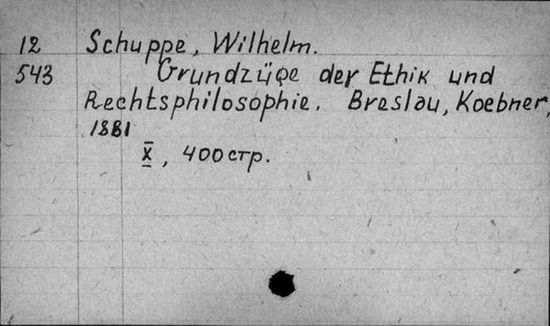 12 Schuppe, Wilhelm.
543 Grundzüge der Ethik und
Rechtsphilosophie. Breslau, Koebner,
1881
X, 400 стр.